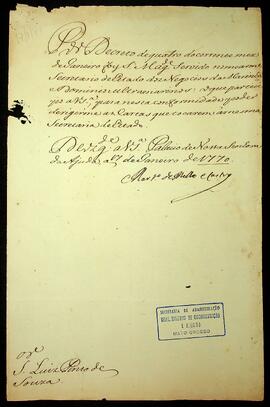 Por Decreto de quatro do corrente mez
de Janeiro foy S. Mag.e Servido nomearme
Secretario de Estado dos Negocios da Marinha
e Dominios Ultramarinos: o que participo
para nesta conformidade poder
dirigirme as Cartas que tocarem á mesma
Secretaria de Estado.
Deos g.de a V. S.ª Palacio de Nossa Senhora
da Ajuda a de Janeiro de 1770.
Mart.º de Mello e Castro
SECRETARIA DE ADMINISTRAÇÃO
MATO GROSSO
S.r Luiz Pinto de
Souza